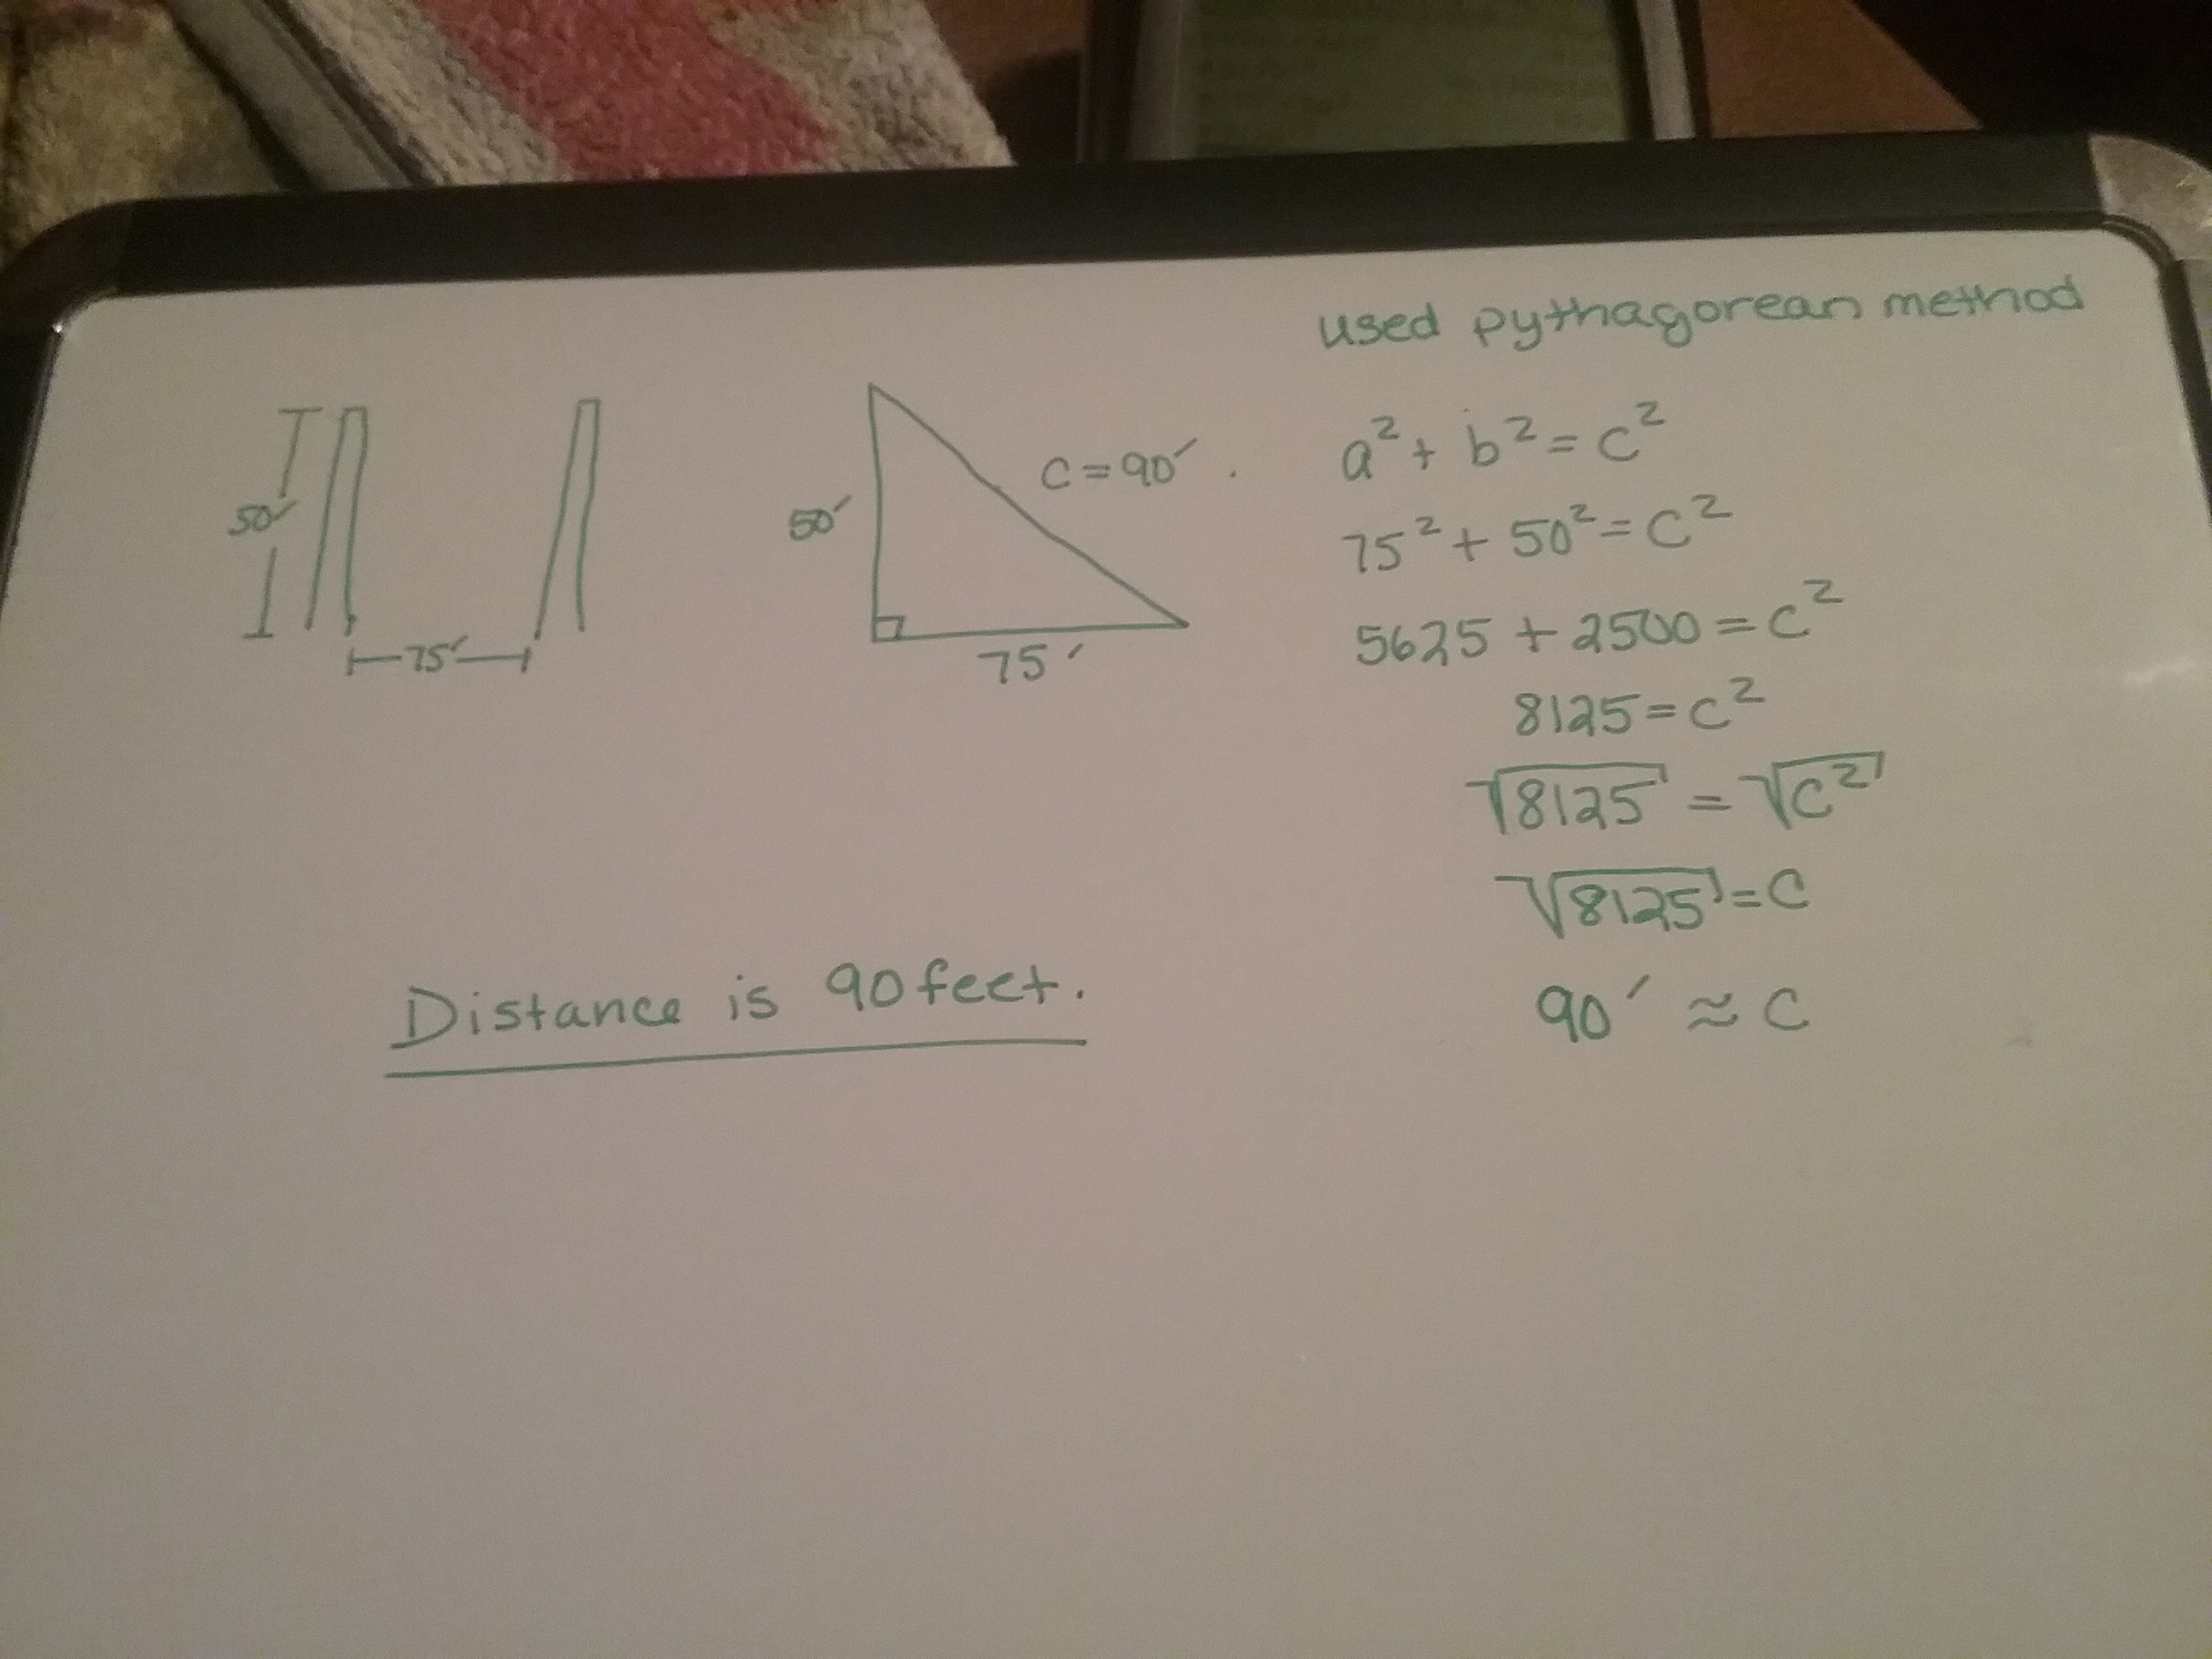 used pythagorean method
50'
75'
50'
c = 90'
75'
a² + b² = c²
75² + 50² = c²
5625 + 2500 = c²
8125 = c²
√8125 = √c²
√8125 = c
90' ≈ c
Distance is 90 feet.